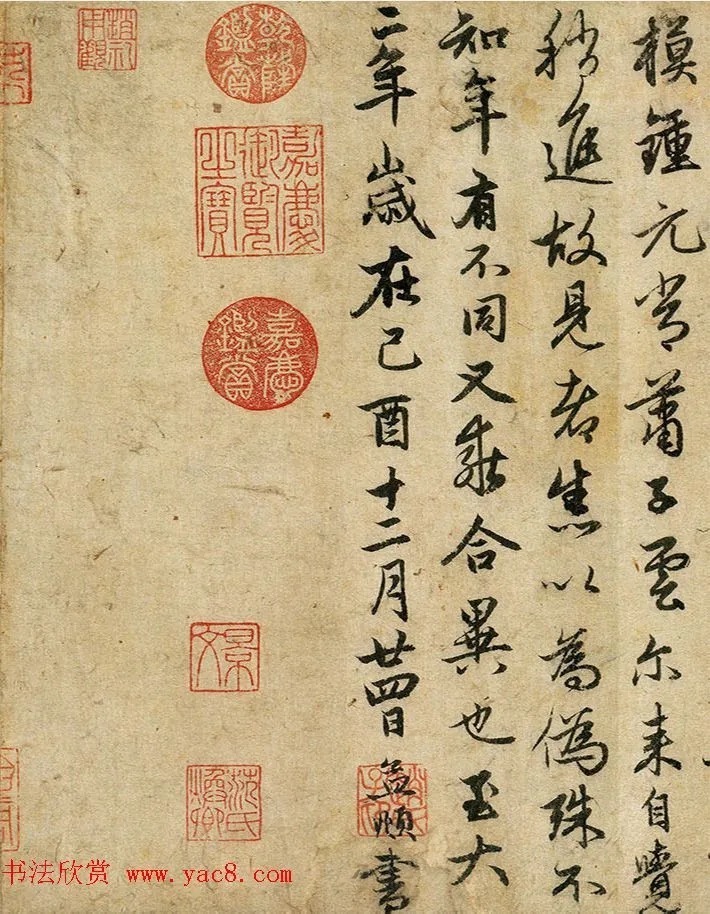 模鍾元常蕭子雲尔来自覺
稍進故見者悉以為偽殊不
知年有不同又乖合異也至大
二年歲在己酉十二月廿四日孟頫書
乾隆鑑賞
嘉慶御覽之寶
嘉慶鑑賞
书法欣赏 www.yac8.com